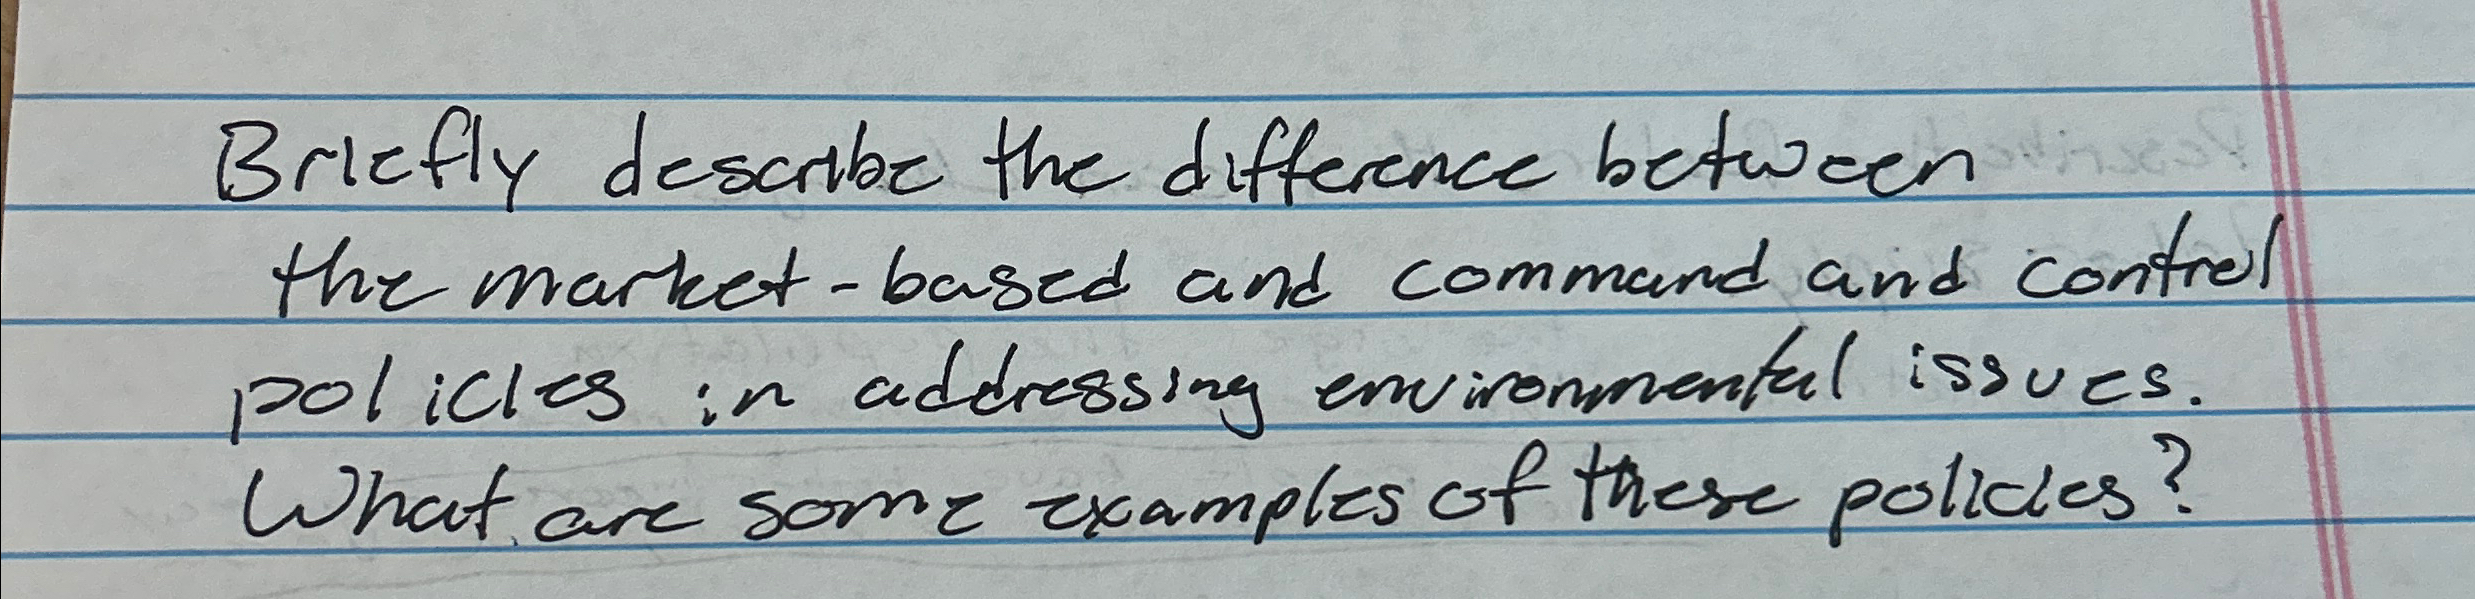 Briefly describe the difference between
the market-based and command and control
policies in addressing environmental issues.
What are some examples of these policies?